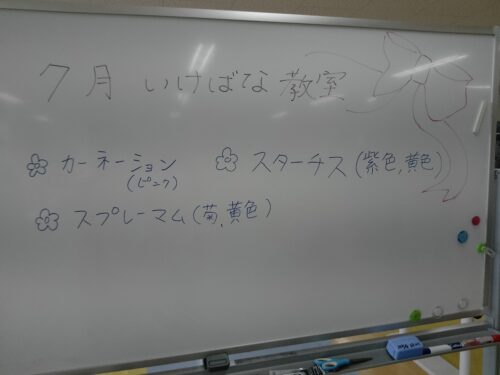 7月 いけばな教室
カーネーション スターチス(紫色,黄色)
(ピンク)
スプレーマム(菊,黄色)